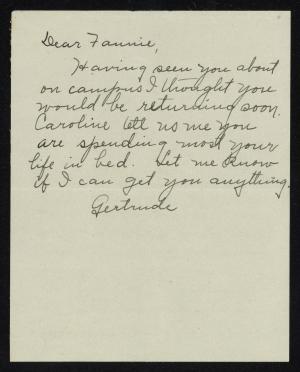 Dear Fannie,
Having seen you about
on campus I thought you
would be returning soon.
Caroline tell us me you
are spending most your
life in bed. Let me know
if I can get you anything.
Gertrude